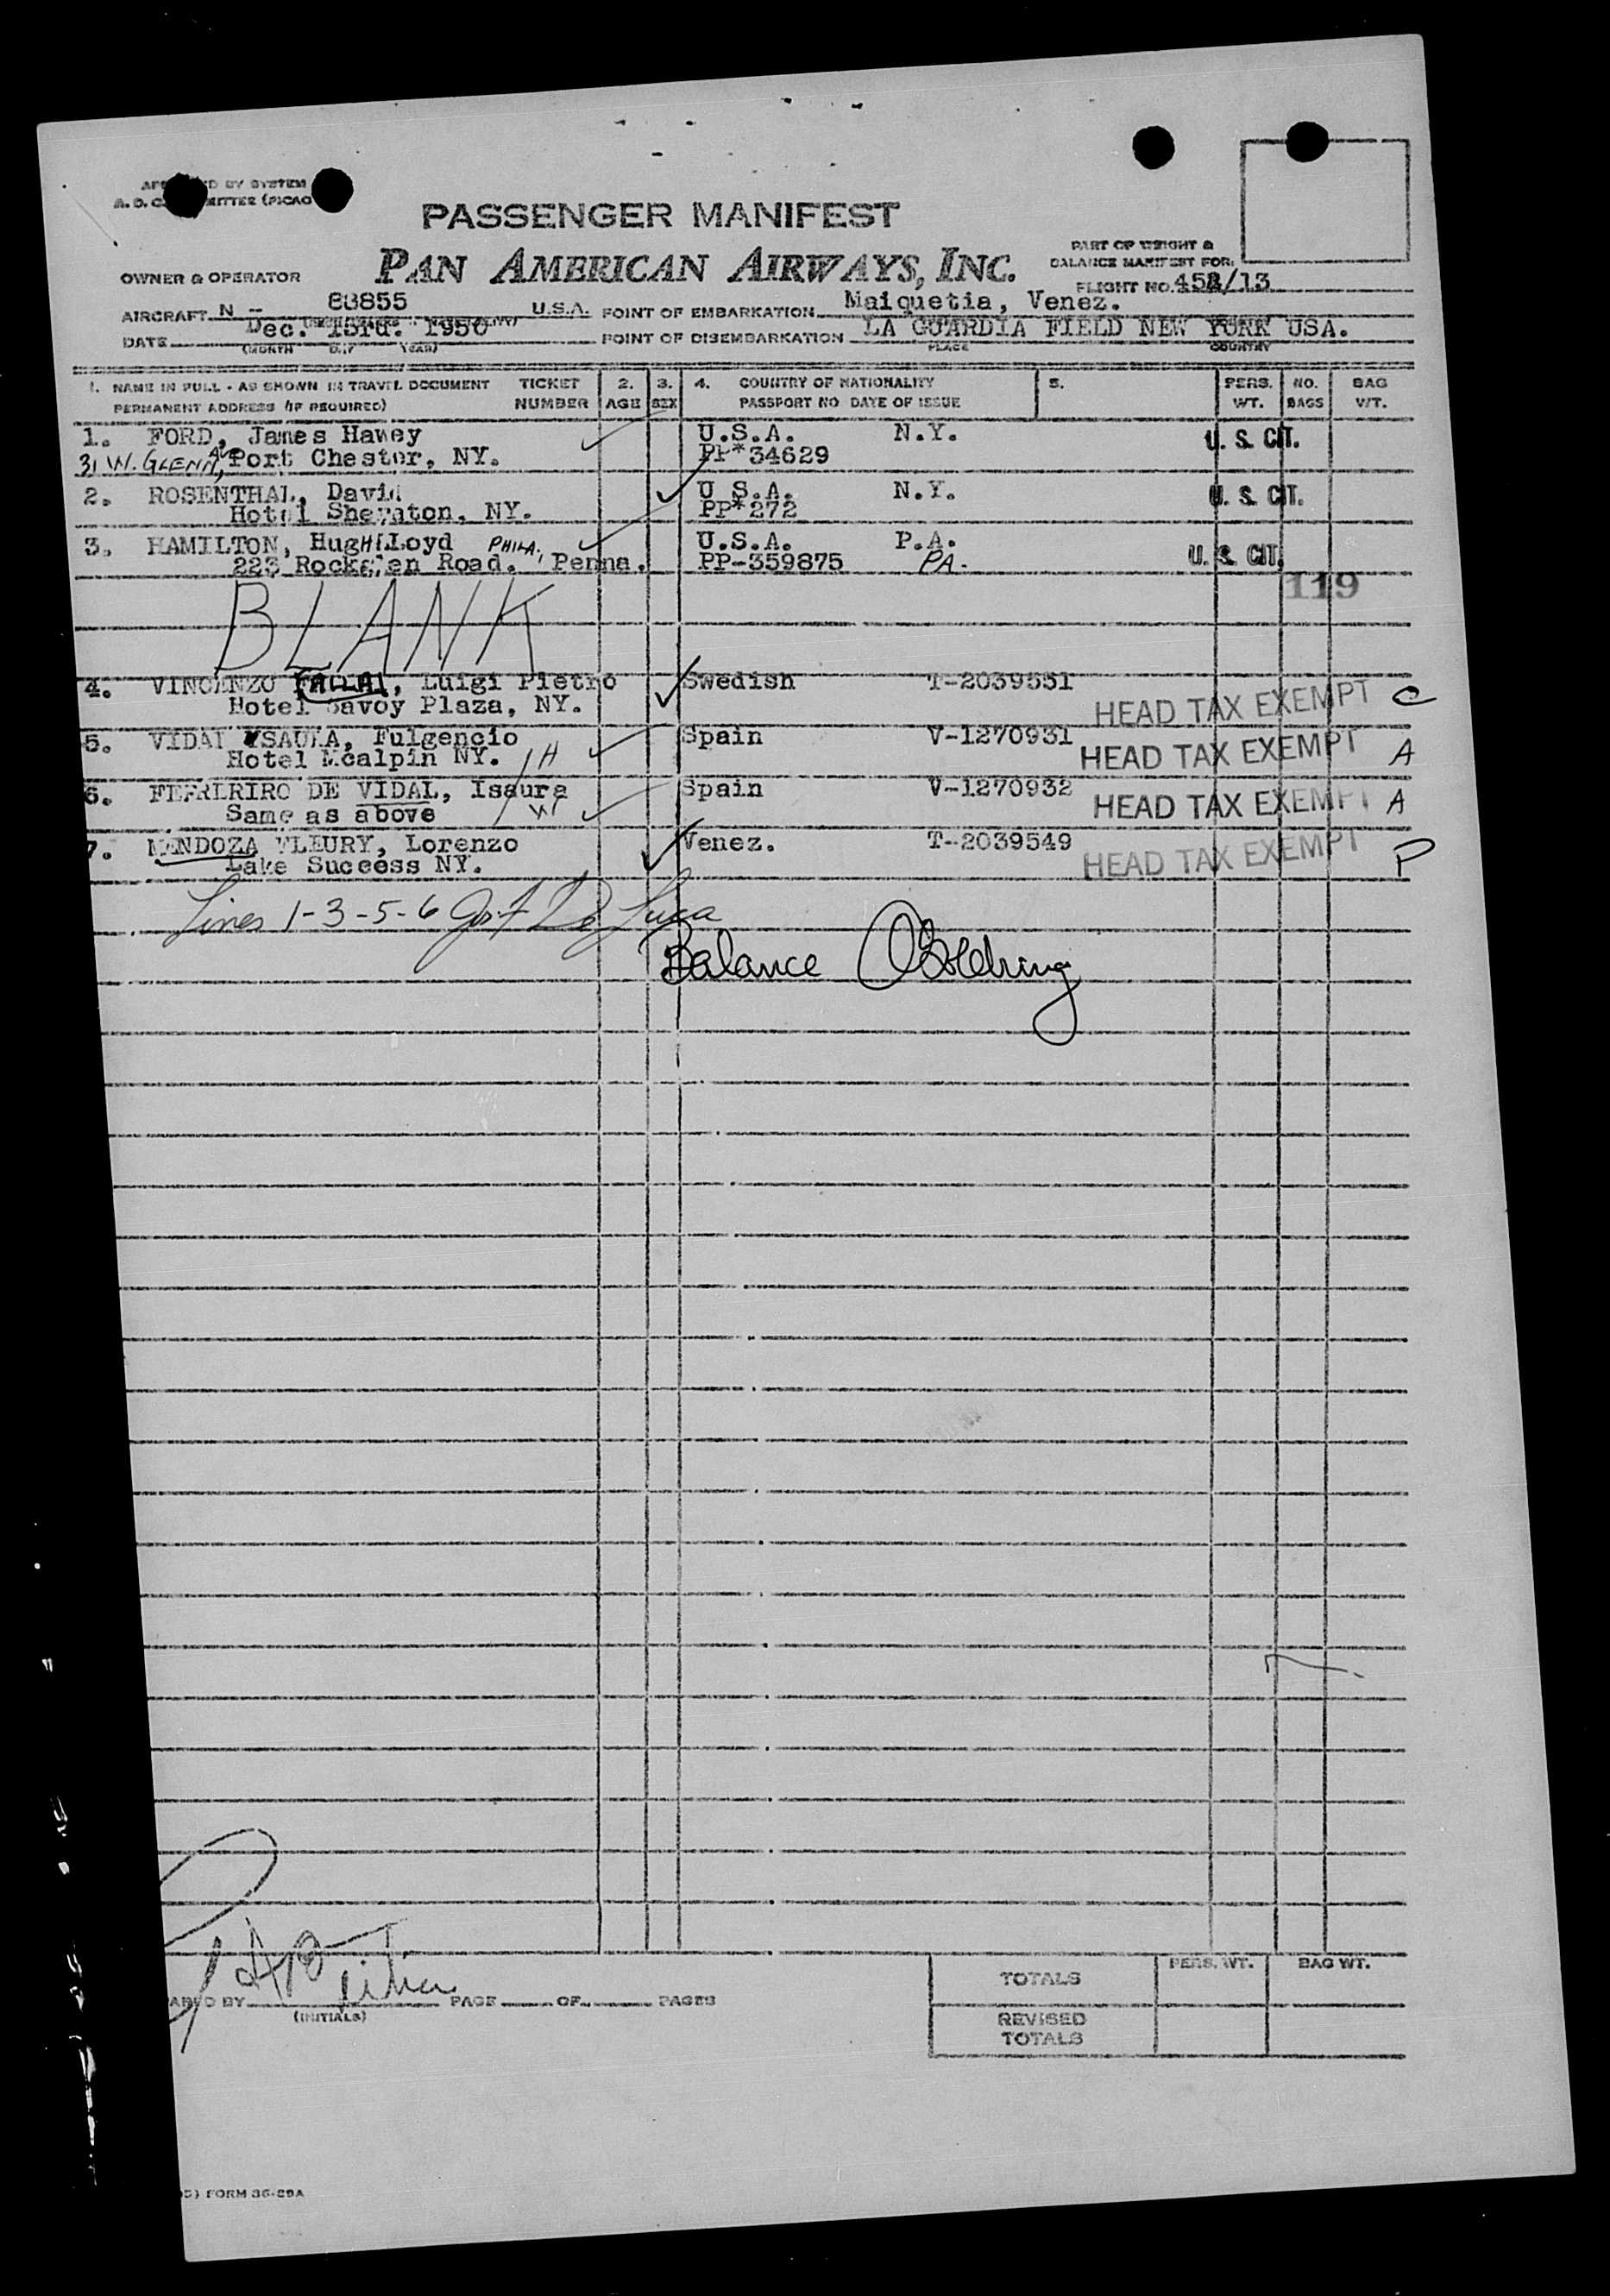 PASSENGER MANIFEST
PAN AMERICAN AIRWAYS, INC.
PART OF WEIGHT &
BALANCE MANIFEST FOR:
OWNER & OPERATOR
FLIGHT NO. /13
AIRCRAFT N - 88855 U.S.A. POINT OF EMBARKATION Maiquetia, Venez.
DATE Dec. 1950 POINT OF DISEMBARKATION LA GUARDIA FIELD NEW YORK USA.
(MONTH DAY YEAR) PLACE COUNTRY
1. NAME IN FULL - AS SHOWN IN TRAVEL DOCUMENT TICKET 2. 3. 4. COUNTRY OF NATIONALITY 5. PERS. NO. BAG
PERMANENT ADDRESS (IF REQUIRED) NUMBER AGE SEX PASSPORT NO DATE OF ISSUE WT. BAGS WT.
1. FORD, James Hawey U.S.A. N.Y. U. S. CIT.
31 W. GLENN AVE, Port Chester, NY. PP*34629
2. ROSENTHAL, David U.S.A. N.Y. U. S. CIT.
Hotel Sheraton, NY. PP*272
3. HAMILTON, Hugh Lloyd U.S.A. P.A. U. S. CIT.
223 Road. PHILA., Penna. PP-359875 PA.
119
BLANK
4. VINCENZO, Luigi Pietro Swedish T-2039551 HEAD TAX EXEMPT C
Hotel Savoy Plaza, NY.
5. VIDAL YSAULA, Fulgencio Spain V-1270931 HEAD TAX EXEMPT A
Hotel Mcalpin NY. / H
6. DE VIDAL, Isaura Spain V-1270932 HEAD TAX EXEMPT A
Same as above / W
7. MENDOZA FLEURY, Lorenzo Venez. T-2039549 HEAD TAX EXEMPT P
Lake Success NY.
Lines 1-3-5-6 Jos. F. De Luca
Balance
TOTALS PERS. WT. BAG WT.
BY PAGE OF PAGES
(INITIALS)
REVISED
TOTALS
FORM 36-29A